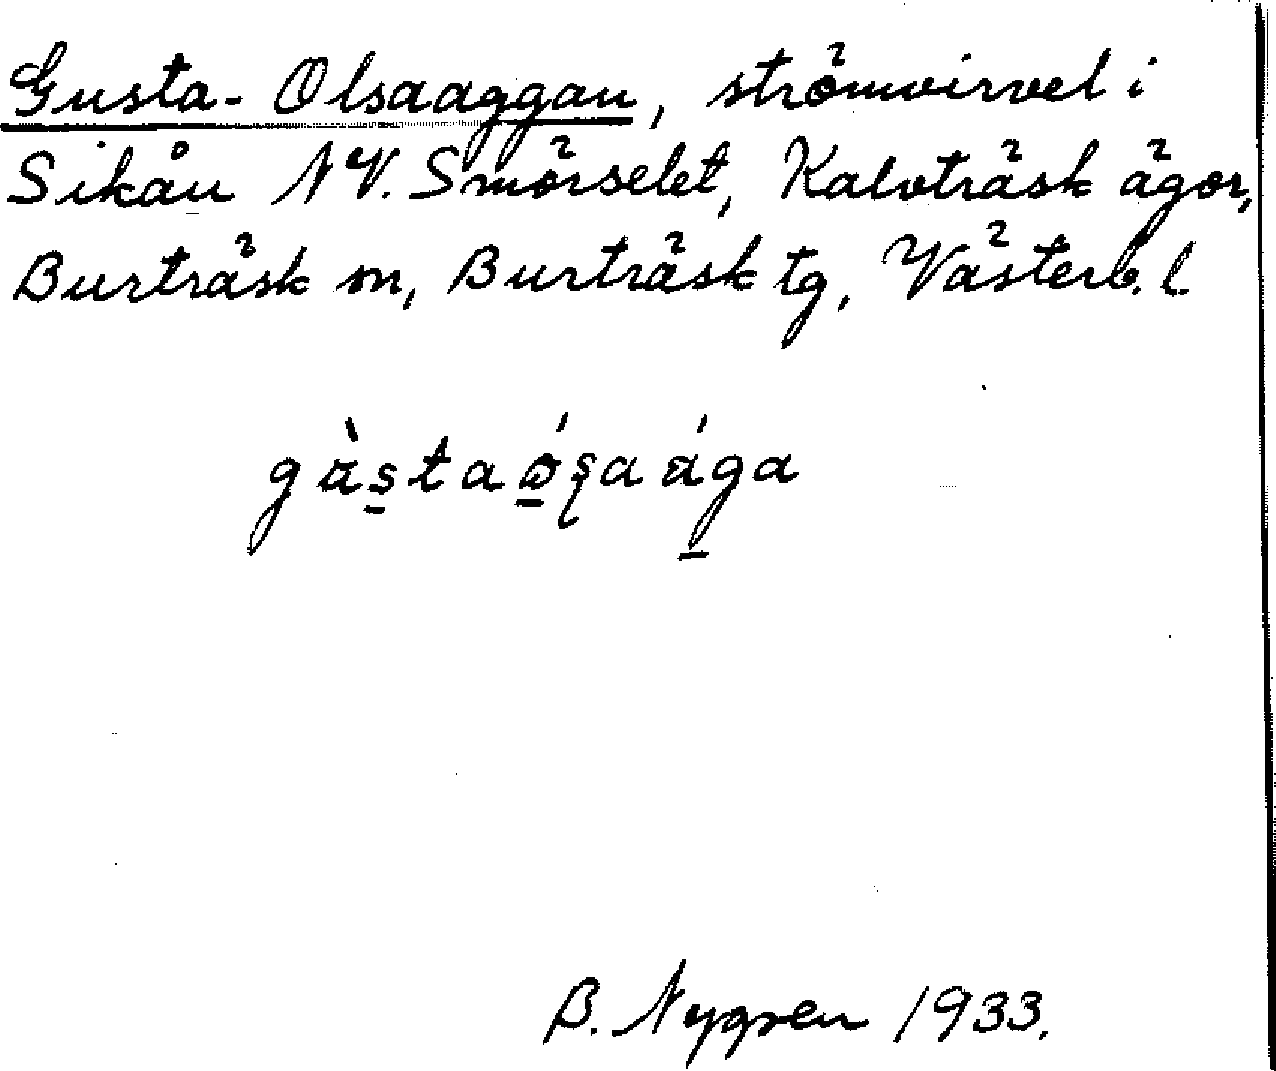 Gusta-Olsaaggan, strömvirvel i
Sikån NV. Smörselet, Kalvträsk ägor,
Burträsk sn, Burträsk tg, Västerb. l
B. Nygren 1933.